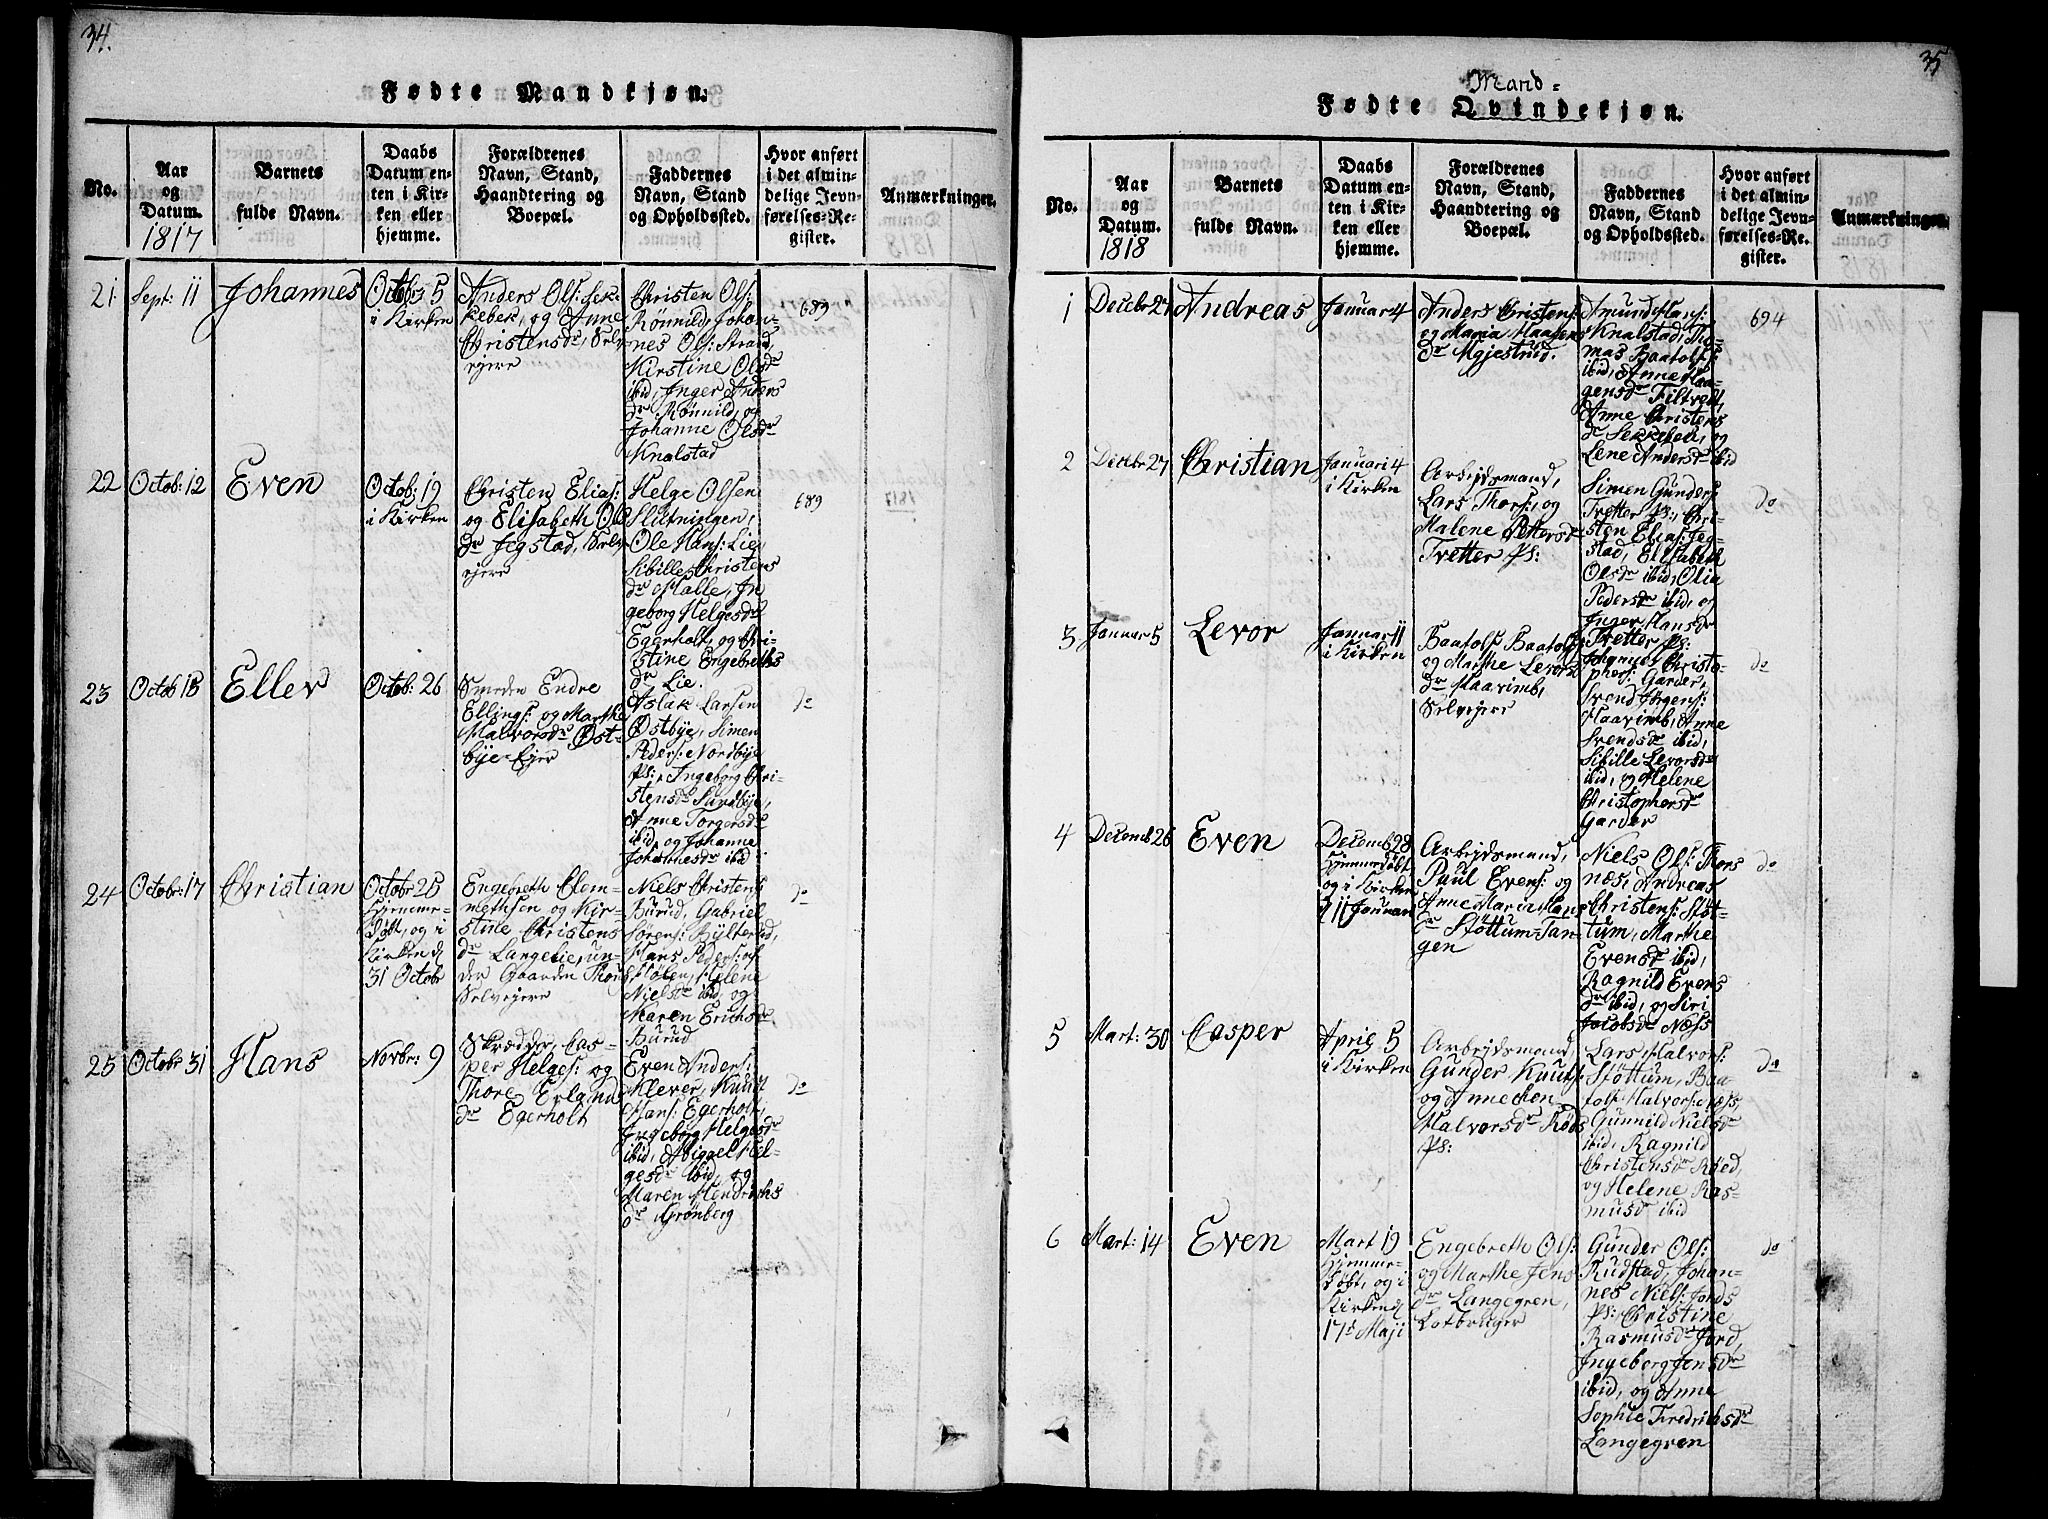 34.
Fødte Mandkjøn.
No.
Aar
og
Datum.
1817
Barnets
fulde Navn.
Daabs
Datum en-
ten i Kir-
ken eller
hjemme.
Forældrenes
Navn, Stand,
Haandtering og
Boepæl.
Faddernes
Navn, Stand
og Opholdssted.
Hvor anført
i det almin-
delige Jevn-
førelses-Re-
gister.
Anmærkninger.
21
Sept: 11
Johannes
Octobr 5
i Kirken
Anders Ols: Sek-
kebek, og Anne
Christensdr, Selv
ejere
Christen Ols:
Rönnild, Johan-
nes Ols: Strand,
Kirstine Olsdr
ibid, Inger Anders
dr Rönnild, og
Johanne Olsdr
Knalstad
689
22
Octob: 12
Even
Octob: 19
i Kirken
Christen Elias:
og Elisabeth Ols
dr Jegstad, Selv
ejere
Helge Olsen
Slutningen,
Ole Hans: Lie,
Sibille Christens
dr Halle, In
geborg Helgesdr
Egerholt, og Chri-
stine Engebreths
dr Lie.
689
23
Octob 18
Eller
Octob: 26
Smeden Endre
Ellings: og Marthe
Halvorsdr Øst-
bye-Ejer
Aslak Larsen
Østbye, Simen
Peders: Nordbye
Ps:, Ingeborg Chri-
stensdr Sundbye,
Anne Torgersdr
ibid, og Johanne
Johannesdr ibid
do
24
Octobr: 17
Christian
Octobr 25
Hjemme-
döbt, og i
Kirken d
31 Octobr
Engebreth Clem-
methsen og Kir-
stine Christens
dr Langelie, un-
der Gaarden Thon
Selvejere
Niels Christens:
Burud, Gabriel
Sorens: Bylterud,
Hans Peders: af
Stølen, Helene
Nielsdr ibid, og
Maren Erichsdr
Burud
do
25
Octobr 31
Hans
Novbr: 9
Skrædder, Cas-
per Helges: og
Thore Erlands
dr Egerholt
Even Anders:
Klever, Knut
Hans: Egerholt,
Ingeborg Helgesdr
ibid, Abigael Hel-
gesdr ibid, og
Maren Hendrichs
dr Grönberg
do
35
Mand=
Fødte Qvindekjøn.
No.
Aar
og
Datum.
1818
Barnets
fulde Navn.
Daabs
Datum en-
ten i Kir-
ken eller
hjemme.
Forældrenes
Navn, Stand,
Haandtering og
Boepæl.
Faddernes
Navn, Stand
og Opholdssted.
Hvor anført
i det almin-
delige Jevn-
førelses-Re-
gister.
Anmærkninger.
1
Decebr 27
Andreas
Januar 4
Anders Christens:
og Maria Haagens
dr Mgjestrud.
Amund Hans:
Knalstad, Tho-
mas Baatolfs:
ibid, Anne Haa-
gensdr Filtvedt,
Anne Christens
dr Sekkebek, og
Lene Andersdr ibid
694
2
Decebr 27
Christian
Januari 4
i Kirken
Arbejdsmand,
Lars Thors: og
Malene Pettersdr
Tretter Ps:
Simen Gunders:
Tretter Ps:, Chri-
sten Elias: Jeg-
stad, Elisabeth
Olsdr ibid, Olia
Pedersdr ibid, og
Inger Hansdr
Tretter Ps:
do
3
Januar 5
Levor
Januar 11
i Kirken
Baatolf Baatolfs:
og Marthe Levors
dr Haavimb,
Selvejere
Johannes Christo-
phers: Garder,
Svend Jörgens:
Haavimb, Anne
Svendsdr ibid,
Sibille Levorsdr
ibid, og Helene
Christophersdr
Garder
do
4
Decemb 26
Even
Decemb 28
Hjemmedöbt
og i Kirken
d 11 Januar
Arbejdsmand,
Paul Evens: og
Anne Maria Hans
dr Stöttum-Tan-
gen
Niels Ols: Thors
næs, Andreas
Christens: Støt-
tum, Marthe
Evensdr ibid,
Ragnild Evens
dr ibid, og Siri
Jacobsdr Næss
do
5
Mart: 30
Casper
April 5
i Kirken
Arbejdsmand,
Gunder Knuts:
og Annechen
Halvorsdr Røds
Ps:
Lars Halvors:
Støttum, Baa-
tolf Halvors: Næss,
Gunnild Nielsdr
ibid, Ragnild
Christensdr Røed,
og Helene Ras-
musdr ibid
do
6
Mart: 14
Even
Mart 19
Hjemme-
döbt, og i
Kirken d
17d Maji
Engebreth Ols:
og Marthe Jens
dr Langegren,
Lotbruger
Gunder Ols:
Rudstad, Johan-
nes Niels: Jords
Ps: Christine
Rasmusdr Jord,
Ingeborg Jensdr
ibid, og Anne
Sophie Fredrichsdr
Langegren
do